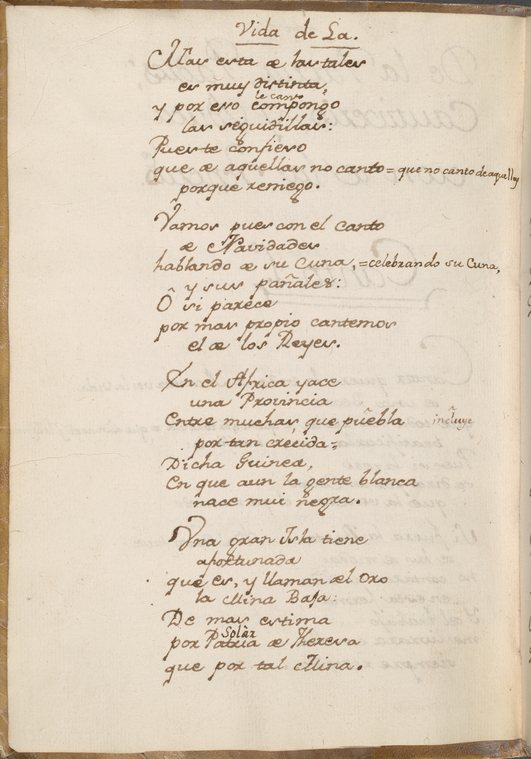 Vida de La.
Mas esta de las tales
es muy distinta,
le canto
y por eso compongo
las seguidillas:
Pues te confieso
que de aquellas no canto = que no canto de aquellas
porque reniego.
Vamos pues con el canto
de Navidades
hablando de su Cuna, = celebrando su Cuna,
y sus pañales:
O si parece
por mas propio cantemos
el de los Reyes.
En el Africa yace
una Provincia
Entre muchas, que puebla incluye
por tan crecida:
Dicha Guinea,
En que aun la gente blanca
nace mui negra.
Una gran Isla tiene
afortunada
que es, y llaman del Oro
la Mina Baja:
De mas estima
Solar
por Patria de Theresa
que por tal Mina.